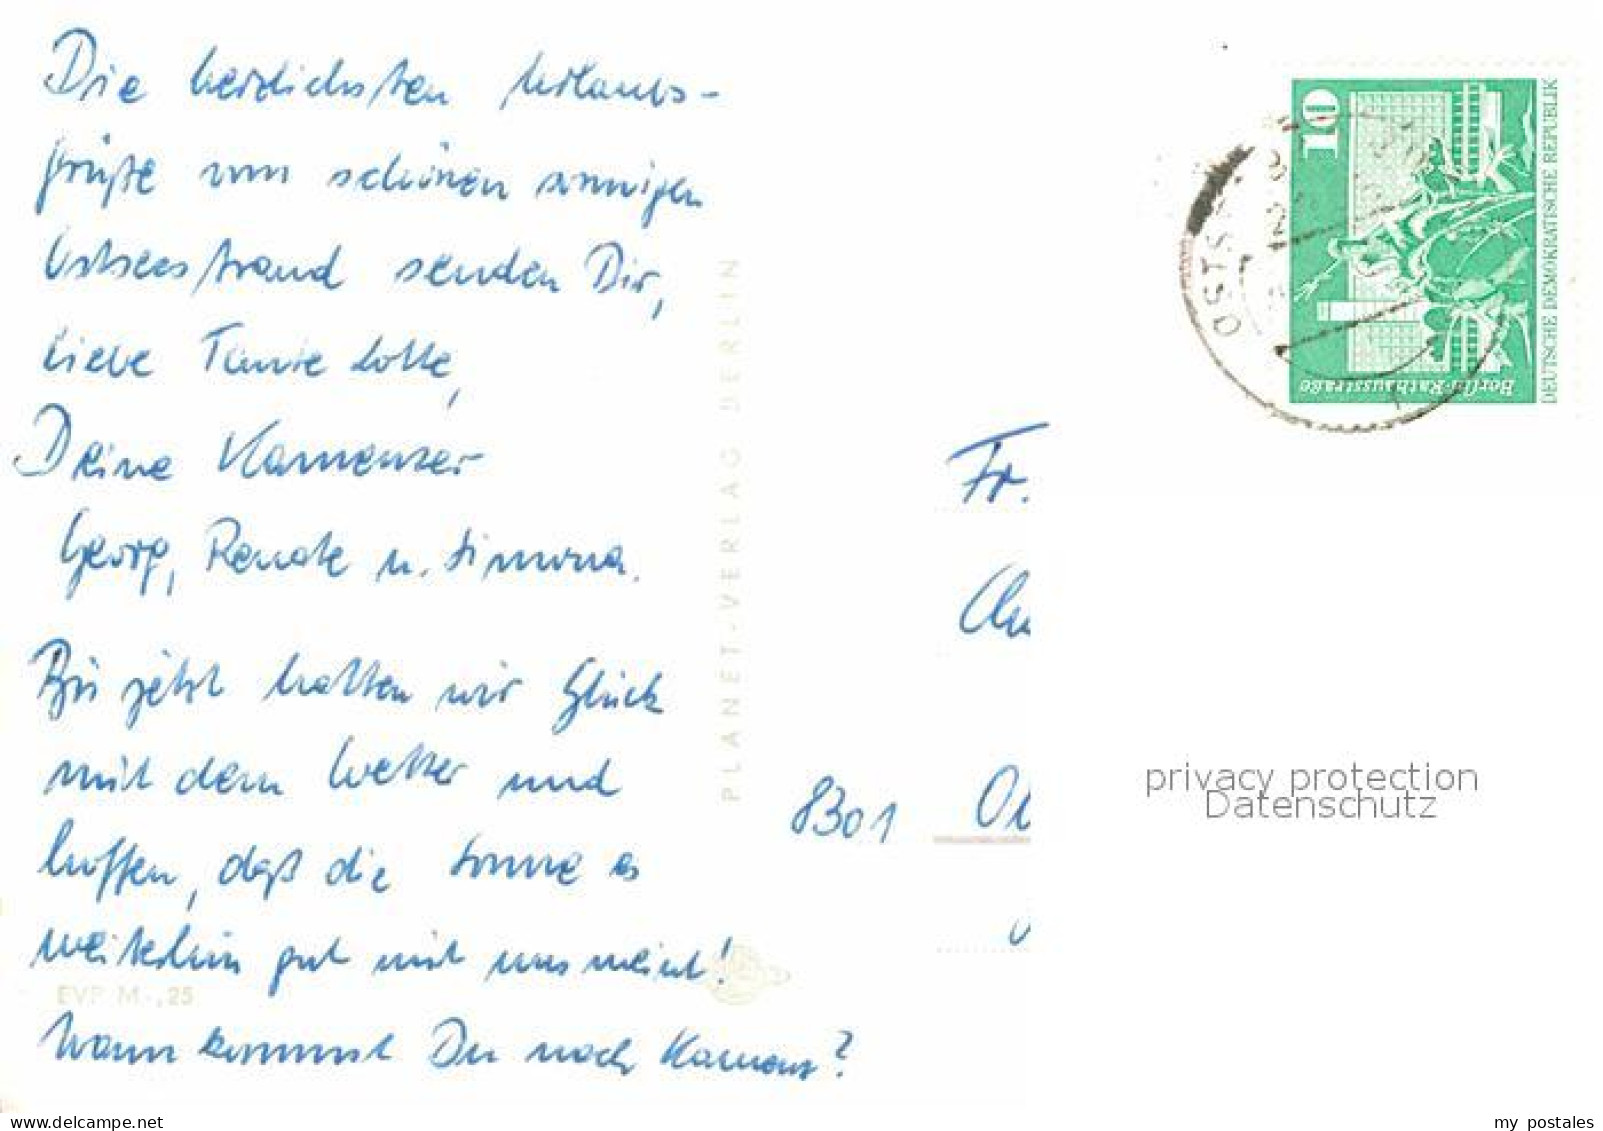 Die herzlichsten Urlaubs-
grüße vom schönen sonnigen
Ostseestrand senden Dir,
liebe Tante Lotte,
Deine Kamenzer
Georg, Renate u. Simona.
Bis jetzt hatten wir Glück
mit dem Wetter und
hoffen, daß die Sonne es
weiterhin gut mit uns meint!
Wann kommst Du nach Kamenz?
EVP M -,25
PLANET-VERLAG BERLIN
10
Berlin-Rathausstraße
DEUTSCHE DEMOKRATISCHE REPUBLIK
OSTS
Fr.
8301
privacy protection
Datenschutz
www.delcampe.net
my_postales